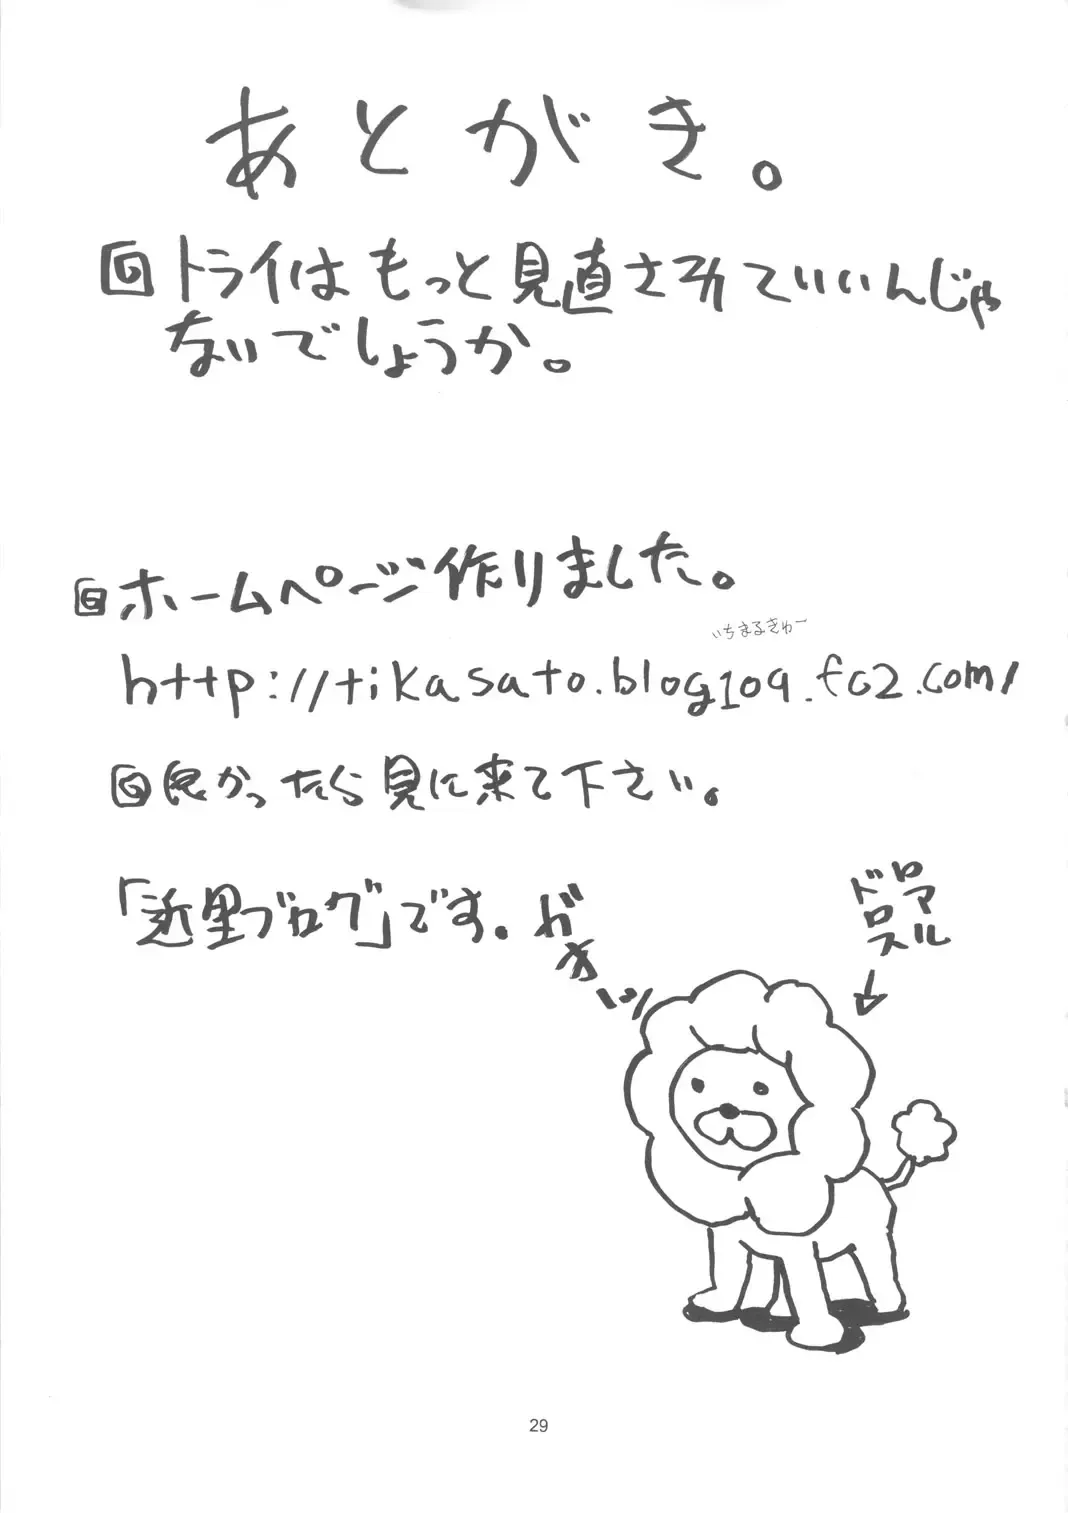 あとがき。
回トライはもっと見直されていいんじゃ
ないでしょうか。
回ホームページ作りました。
いちまるきゅー
http://tikasato.blog109.fc2.com/
回良かったら見に来て下さい。
「近里ブログ」です。
がおーッ
ロアルドロス
29